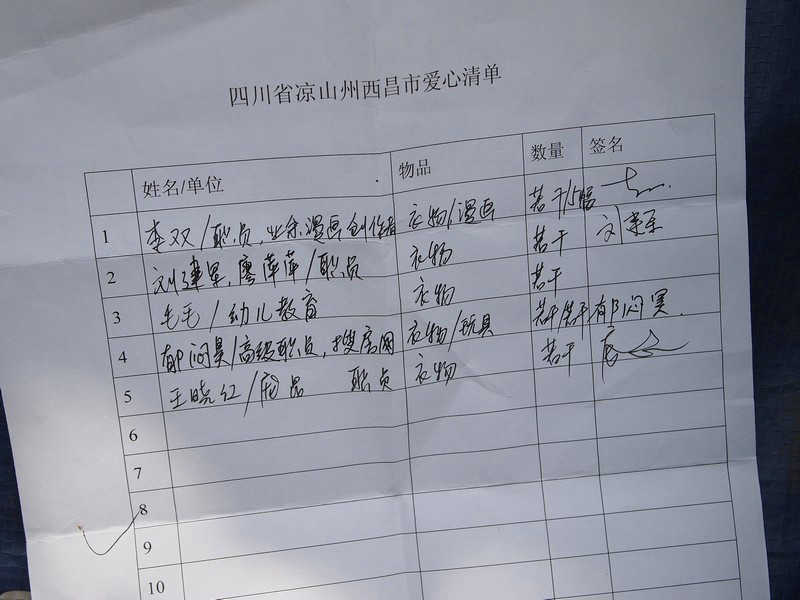 四川省凉山州西昌市爱心清单
姓名/单位 物品 数量 签名
1 李双/职员,业余漫画创作者 衣物/漫画 若干/5幅
2 刘建军,廖萍萍/职员 衣物 若干 刘建军
3 毛毛/幼儿教育 衣物 若干
4 郁闷昊/高级职员,搜房网 衣物/玩具 若干/若干 郁闷昊
5 王晓红/ 职员 衣物 若干
6
7
8
9
10